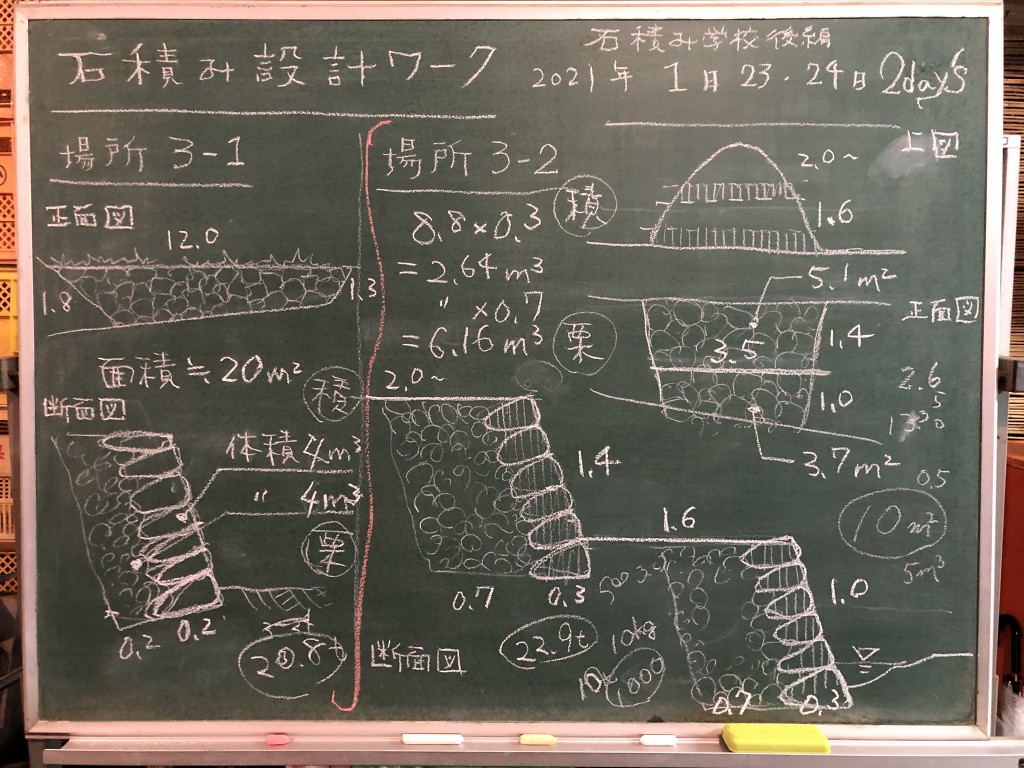 石積み設計ワーク
石積み学校後編
2021年 1月23・24日 2day's
場所 3-1
正面図
12.0
1.8
1.3
面積≒20m²
断面図
積
体積4m³
〃 4m³
栗
0.2 0.2
場所 3-2
積
8.8×0.3
=2.64m³
〃 ×0.7
=6.16m³
栗
2.0~
1.4
0.7 0.3
断面図
22.9t
10kg
1000
1.6
1.0
0.7 0.3
上図
2.0~
1.6
正面図
5.1m²
3.5
1.4
1.0
3.7m²
2.6
5
0.5
10m²
5m³